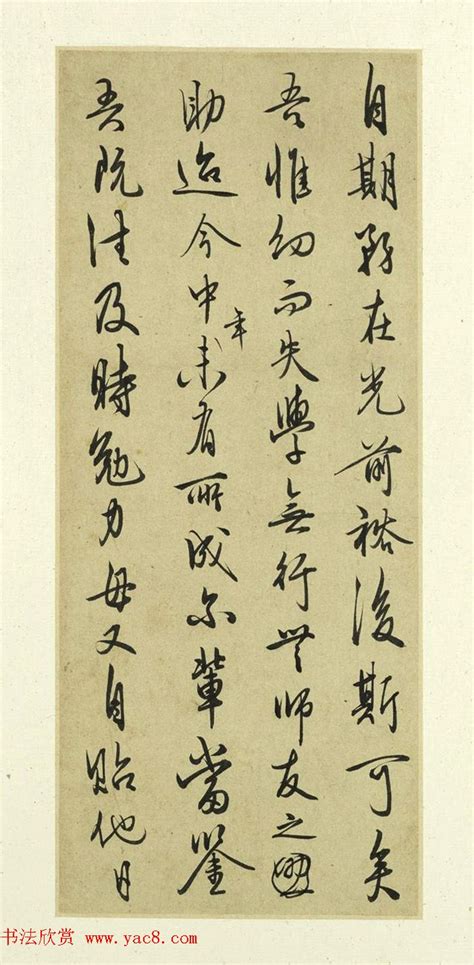 自期務在光前裕後斯可矣
吾惟幼而失學無行無師友之
助迨今中年未有所成爾輩當鑒
吾既往及時勉力毋又自貽他日
书法欣赏 www.yac8.com